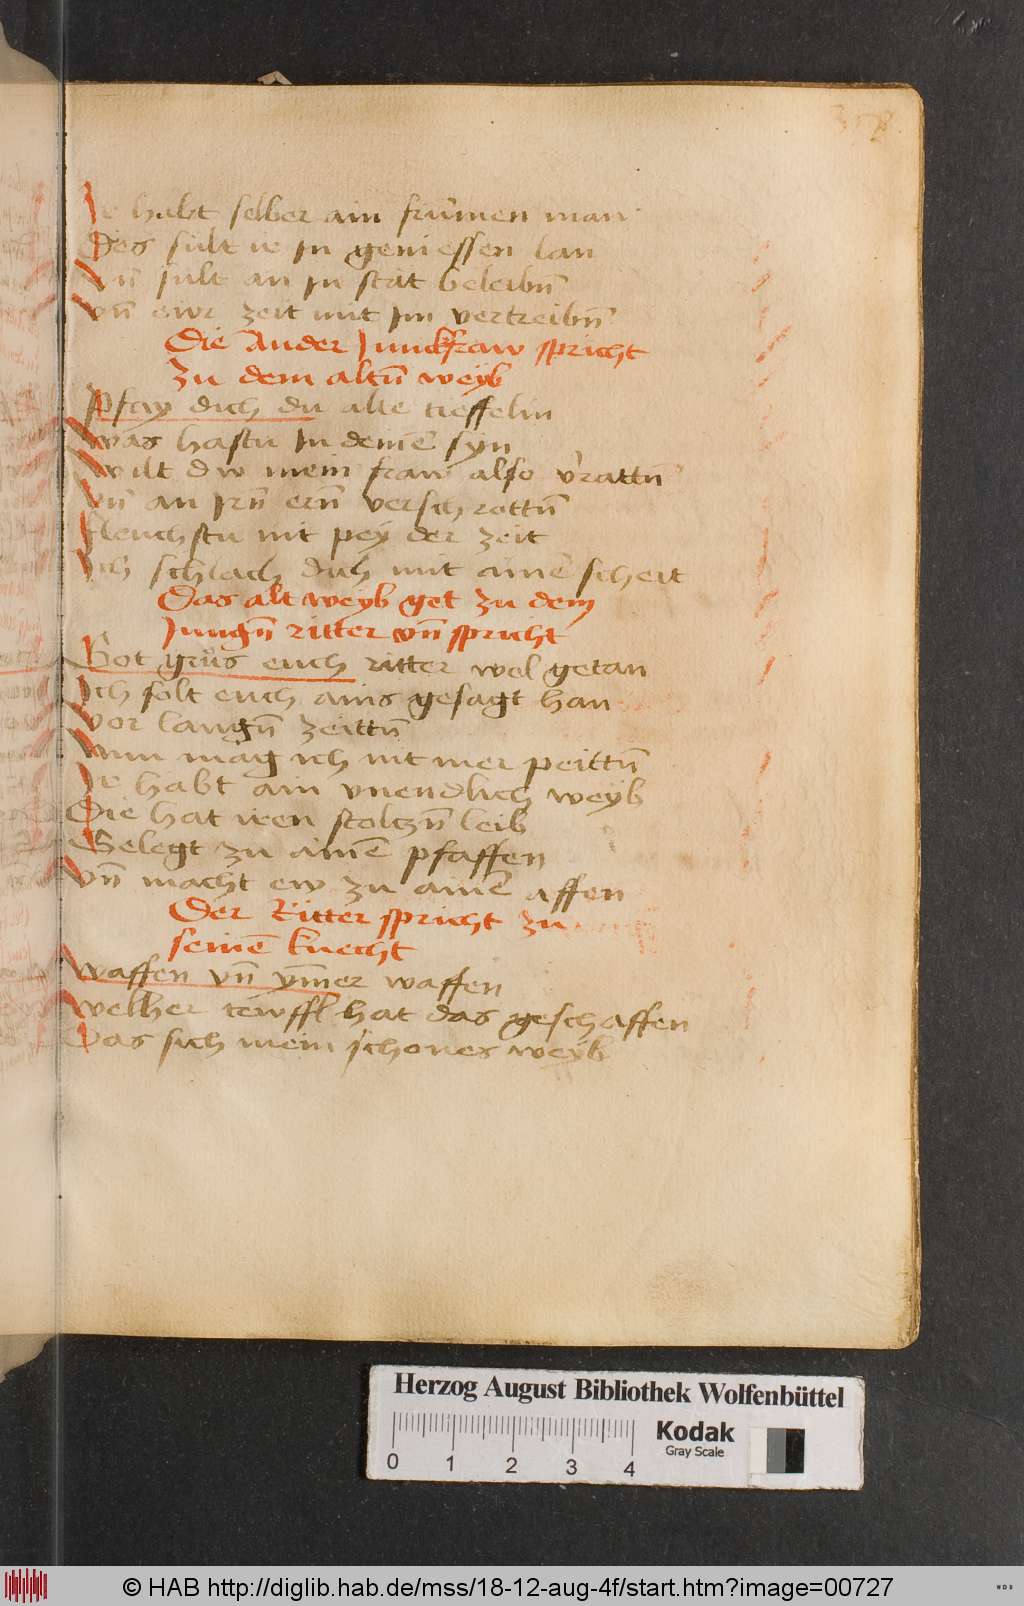 Ir habt selber ain frumen man
Des sült ir In geniessen lan
Vn̄ sült an In stät beleibn̄
Vn̄ ewr zeit mit Im vertreibn̄
Die Ander Junckfraw spricht
zu dem altn̄ weyb
Pfay dich du alte tieffelin
Was hastu In deinē syn
Wilt dw mein fraw also v̓rattn̄
Vn̄ an Irn̄ ern̄ verschrottn̄
fleuchstu nit pey der zeit
Ich schlach dich mit ainē scheit
Das alt weyb get zu dem
Jungn̄ ritter vn̄ spricht
Got grus euch ritter wol getan
Ich solt euch ains gesagt han
Vor langn̄ zeittn̄
Nun mag ich nit mer peittn̄
Ir habt ain vnendlich weyb
Die hat iren stoltzn̄ leib
Gelegt zu ainē pfaffen
Vn̄ macht ew zu ainē affen
Der Ritter spricht zu
seinē knecht
Waffen vn̄ ym̄er waffen
Welher tewffl hat das geschaffen
Das sich mein schones weyb
Herzog August Bibliothek Wolfenbüttel
Kodak
Gray Scale
0 1 2 3 4
© HAB http://diglib.hab.de/mss/18-12-aug-4f/start.htm?image=00727